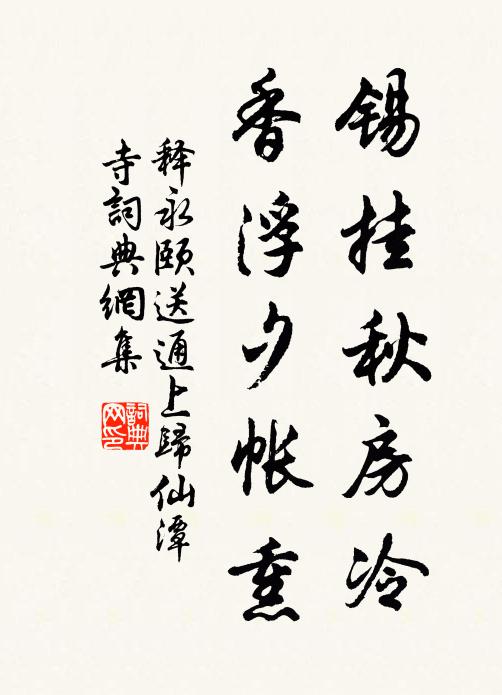 锡挂秋房冷
香浮夕帐熏
释永颐送通上归仙潭
寺詞典網集
詞典网印